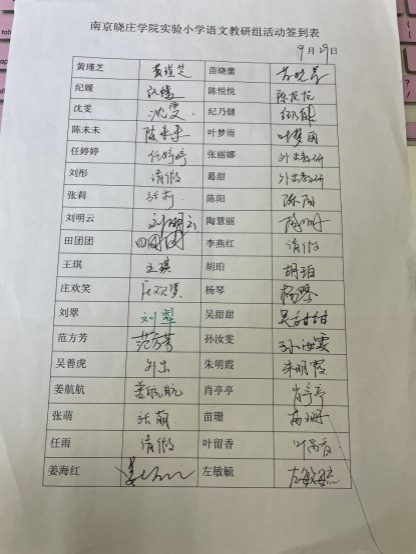 南京晓庄学院实验小学语文教研组活动签到表
9月29日
黄瑾芝 黄瑾芝 苗晓蕾 苗晓蕾
纪媛 纪媛 陈悦悦 陈悦悦
沈雯 沈雯 纪乃健 纪乃健
陈未未 陈未未 叶梦雨 叶梦雨
任婷婷 任婷婷 张丽娜 外出教研
刘彤 请假 葛甜 外出教研
张莉 张莉 陈阳 陈阳
刘明云 刘明云 陶慧丽
田团团 田团团 李燕红 请假
王琪 王琪 胡珀 胡珀
庄欢笑 庄欢笑 杨琴 杨琴
刘翠 刘翠 吴甜甜 吴甜甜
范方芳 范方芳 孙汝雯 孙汝雯
吴善虎 外出 朱明霞 朱明霞
姜航航 姜航航 肖亭亭 肖亭亭
张萌 张萌 苗珊 苗珊
任雨 请假 叶留香 叶留香
姜海红 左敏毓 左敏毓